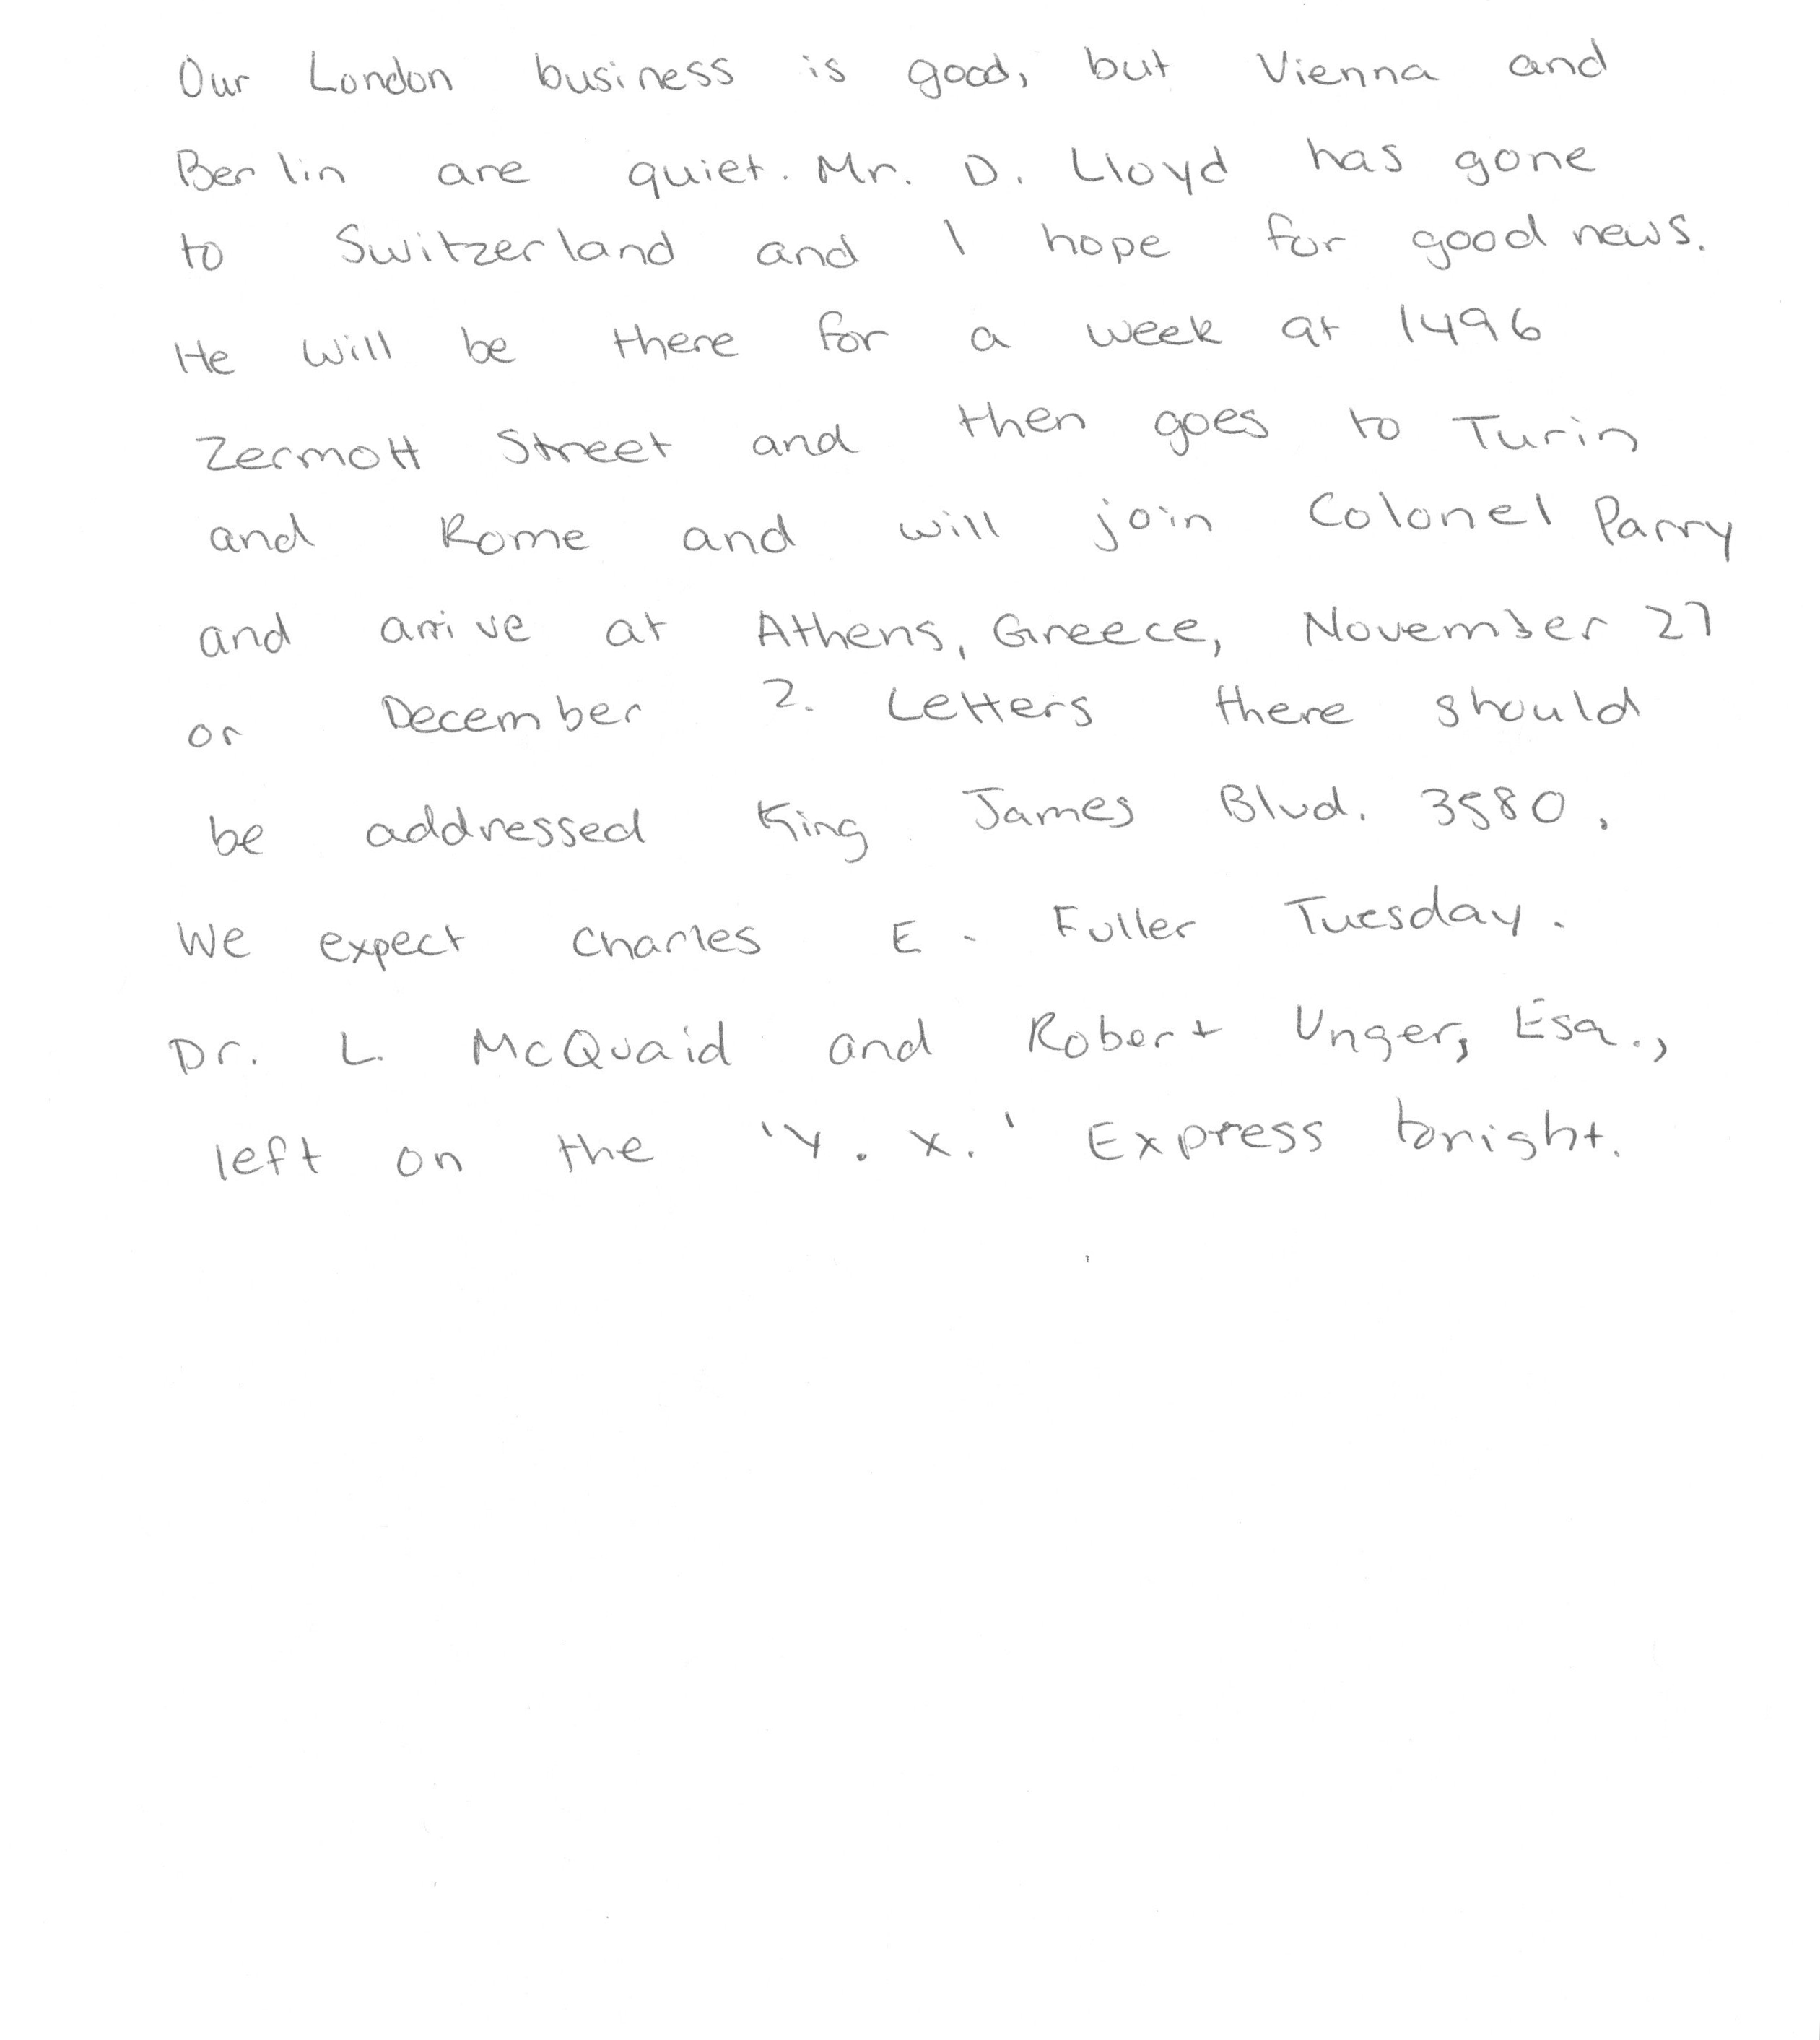 Our London business is good, but Vienna and
Berlin are quiet. Mr. D. Lloyd has gone
to Switzerland and I hope for good news.
He will be there for a week at 1496
Zermott Street and then goes to Turin
and Rome and will join Colonel Parry
and arrive at Athens, Greece, November 27
or December 2. Letters there should
be addressed King James Blvd. 3580.
We expect Charles E. Fuller Tuesday.
Dr. L. McQuaid and Robert Unger, Esq.,
left on the 'Y. X.' Express tonight.